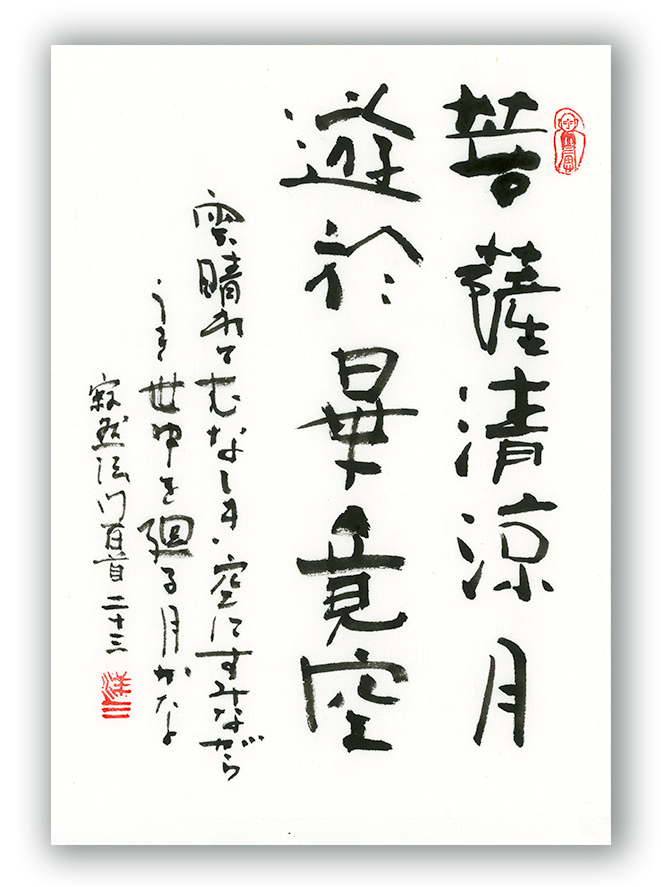 菩薩清涼月
遊於畢竟空
雲晴れてむなしき空にすみながら
うき世中を廻る月かな
寂然法門百首二十三